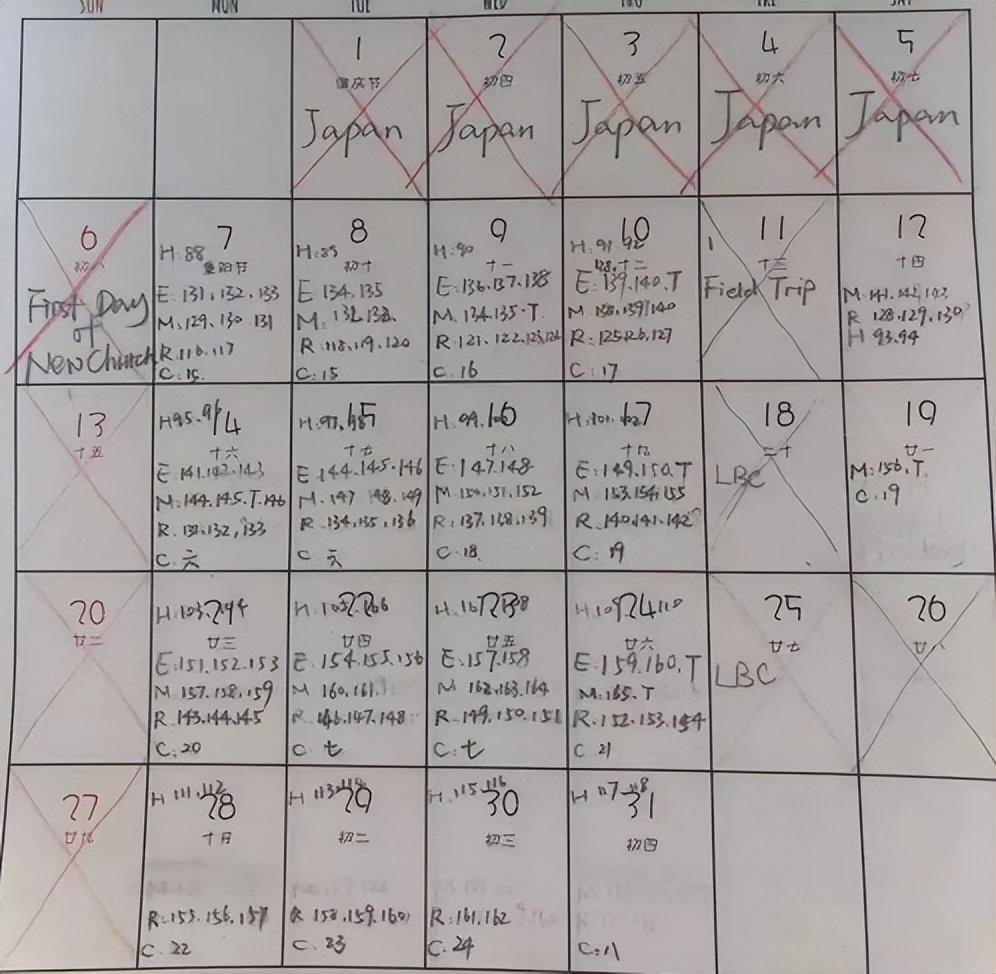 SUN MON TUE WED THU FRI SAT
1
国庆节
Japan
2
初四
Japan
3
初五
Japan
4
初六
Japan
5
初七
Japan
6
初八
First Day
of
New Church
7
H:88
重阳节
E:131,132,133
M:129,130,131
R:116,117
C:15
8
H:89
初十
E:134,135
M:132,133
R:118,119,120
C:15
9
H:90
十一
E:136,137,138
M:134,135,T
R:121,122,123,124
C:16
10
H:91,92
十二
E:139,140,T
M:138,139,140
R:125,126,127
C:17
11
十三
Field Trip
12
十四
M:141,142,143
R 128,129,130
H 93,94
13
十五
14
H:95,96
十六
E:141,142,143
M:144,145,T,146
R:131,132,133
C:六
15
H:97,98
十七
E:144,145,146
M:147,148,149
R:134,135,136
C:六
16
H:99,100
十八
E:147,148
M:150,151,152
R:137,138,139
C:18
17
H:101,102
十九
E:149,150,T
M 153,154,155
R:140,141,142
C:19
18
二十
LBC
19
廿一
M:156,T
C:19
20
廿二
21
H:103,104
廿三
E:151,152,153
M 157,158,159
R:143,144,145
C:20
22
H:105,106
廿四
E:154,155,156
M 160,161
R 146,147,148
C 七
23
H:107,108
廿五
E:157,158
M 162,163,164
R:149,150,151
C:七
24
H:109,110
廿六
E:159,160,T
M:165,T
R:152,153,154
C 21
25
廿七
LBC
26
廿八
27
廿九
28
H 111,112
十月
R:155,156,157
C.22
29
H 113,114
初二
R 158,159,160
C.23
30
H.115,116
初三
R:161,162
C.24
31
H 117,118
初四
C:八